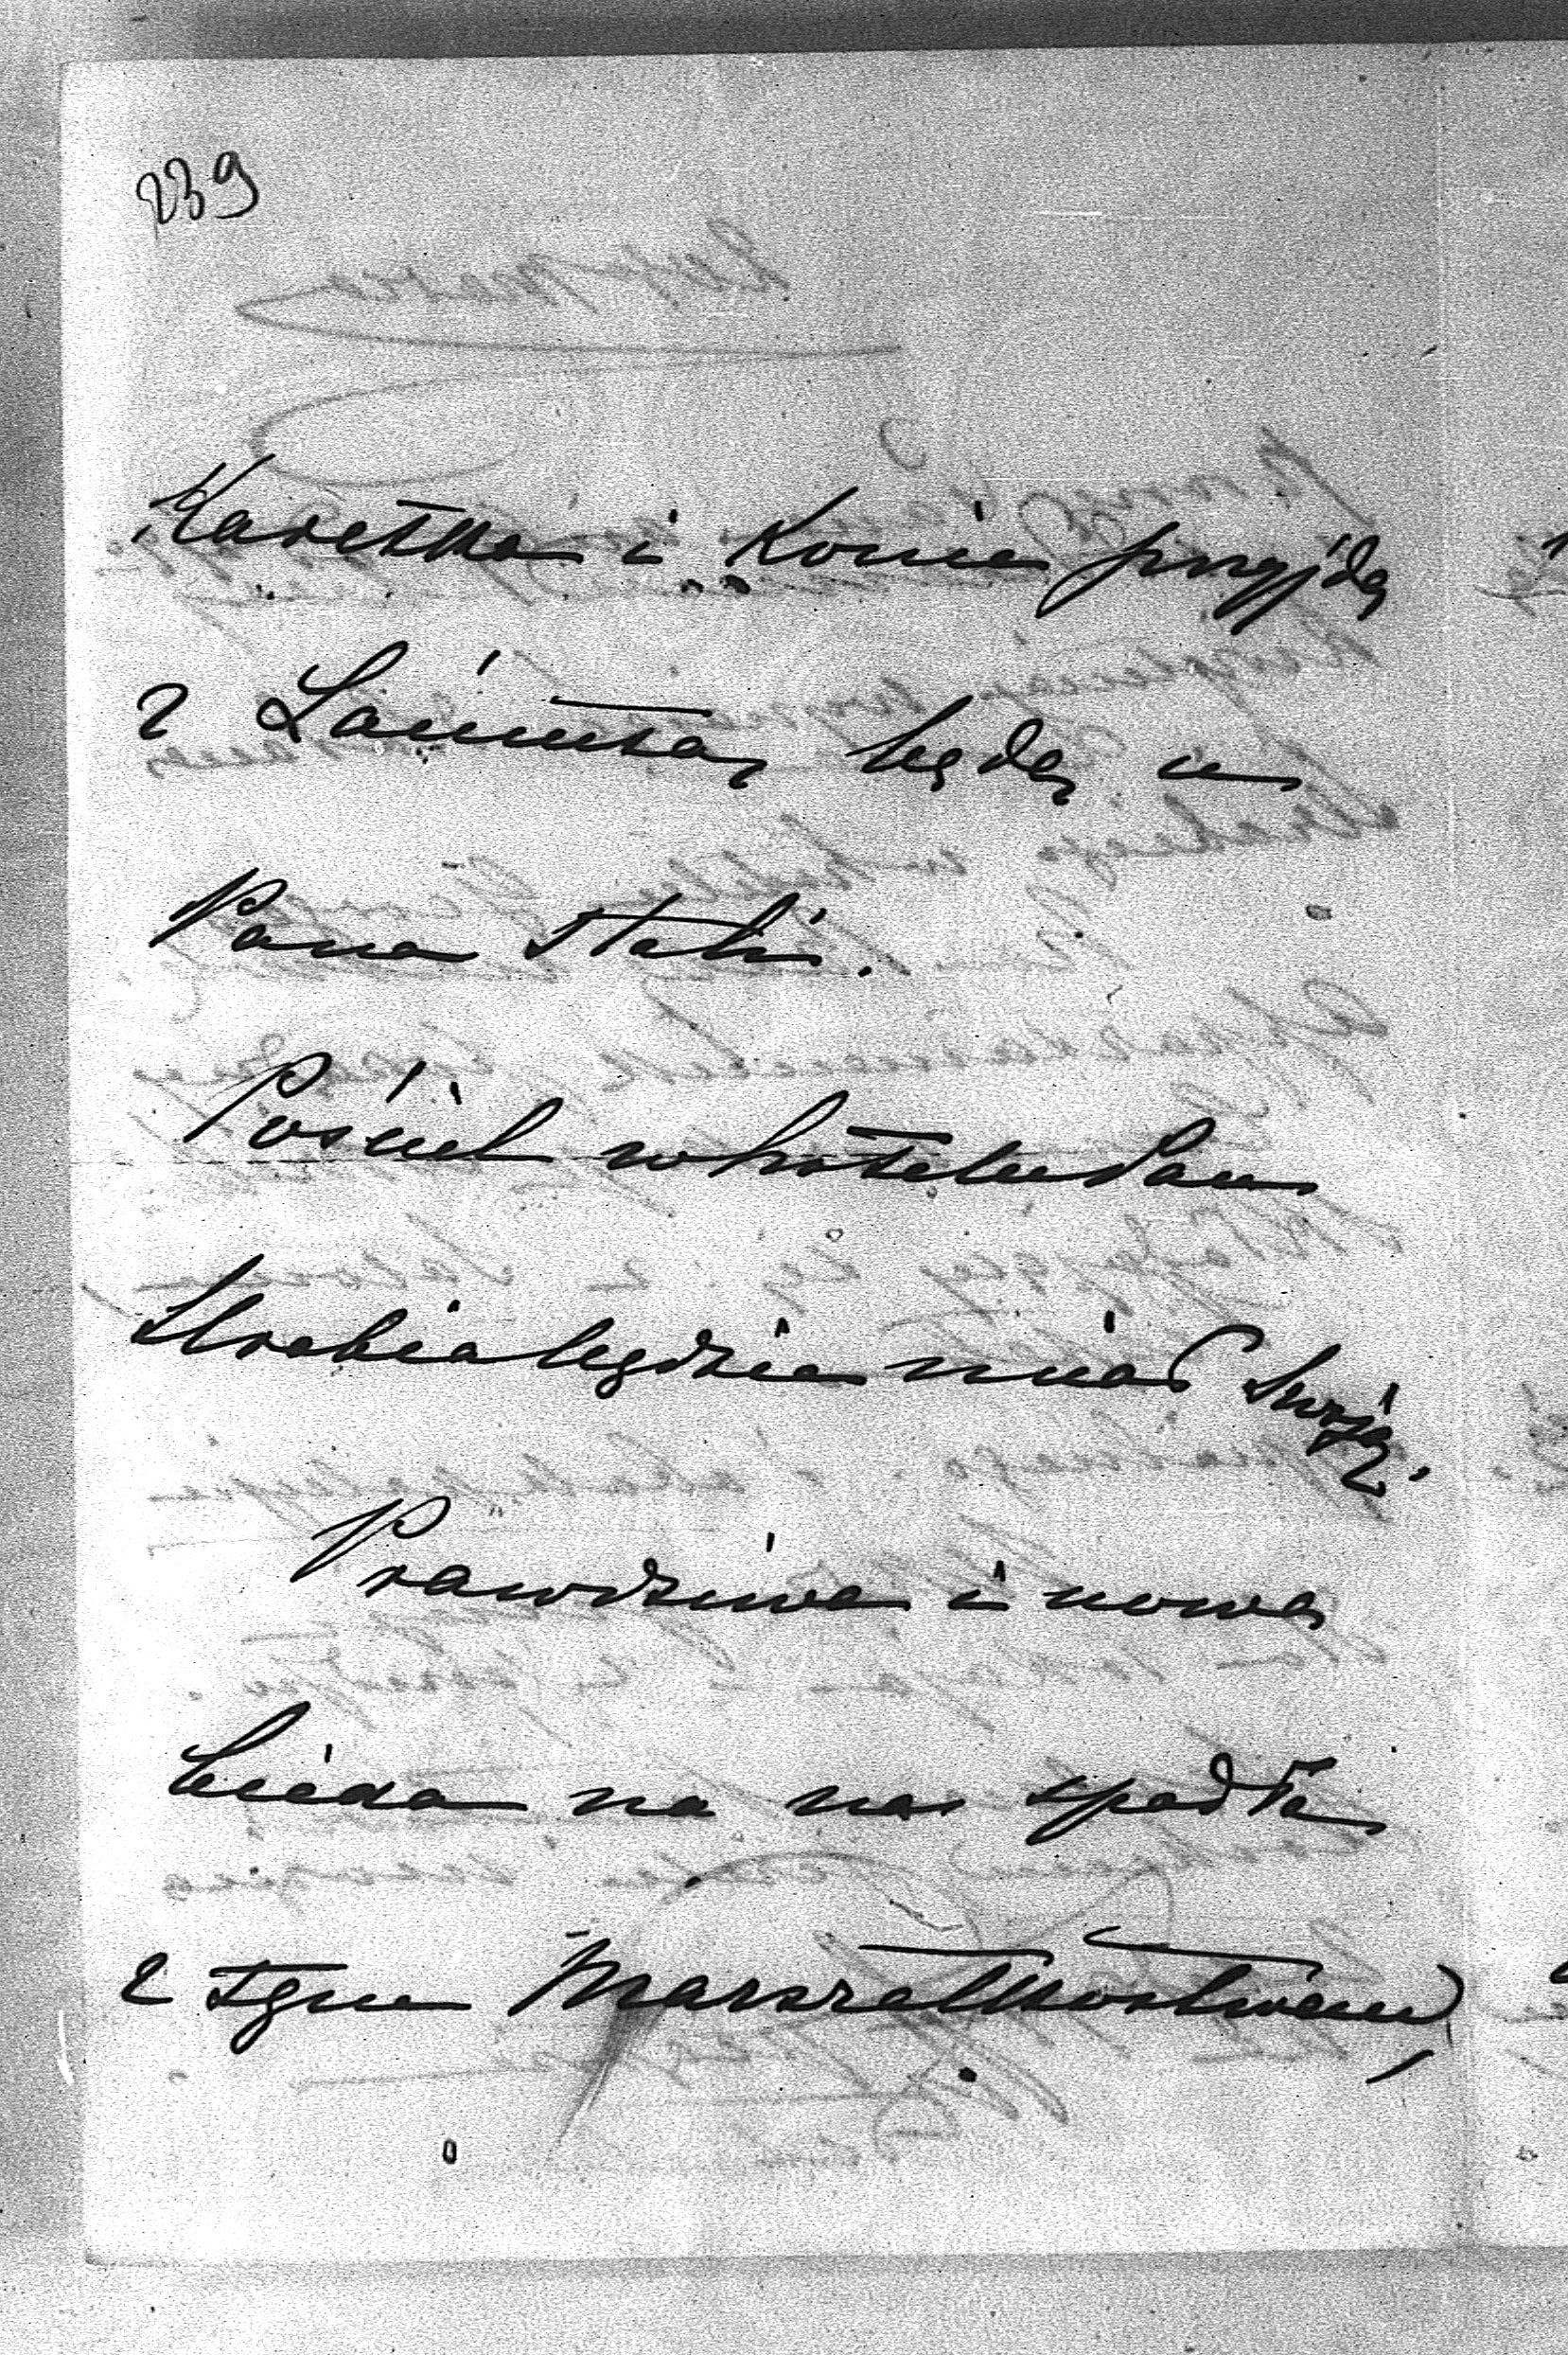 239
Karetka i Konie przyjdą
z Łańcuta, będą u
Pana stali.
Pościel w hotelu Pan
Hrabia będzie miał swoją.
Prawdziwa i nowa
bieda na nas spadła
z tym Marszałkostwem,